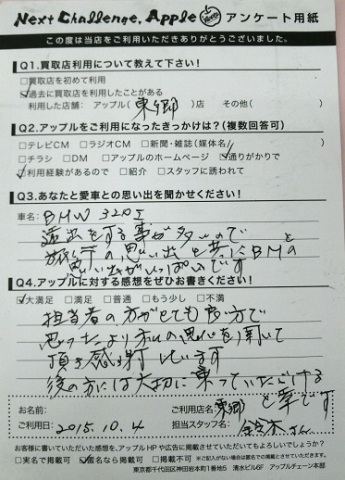 Next Challenge, Apple アンケート用紙
この度は当店をご利用いただきありがとうございました。
Q1.買取店利用について教えて下さい!
□買取店を初めて利用
☑過去に買取店を利用したことがある
利用した店舗: アップル( 東郷 )店 その他( )
Q2.アップルをご利用になったきっかけは?(複数回答可)
□テレビCM □ラジオCM □新聞・雑誌(媒体名 )
□チラシ □DM □アップルのホームページ ☑通りがかりで
☑利用経験があるので □紹介 □スタッフに誘われて
Q3.あなたと愛車との思い出を聞かせください!
車名: BMW 320I
遠出をする事が多いので
旅行の思い出と共にBMとの
思い出がいっぱいです
Q4.アップルに対する感想をぜひお書きください!
☑大満足 □満足 □普通 □もう少し □不満
担当者の方がとても良い方で
思ったより私の思いを聞いて
頂き感謝しています
後の方には大切に乗っていただけると幸です
お名前: ご利用店名: 東郷
ご利用日: 2015.10.4 担当スタッフ名: 鈴木さん
お客様に書いていただいた感想を、アップルHPや広告に掲載させていただいてもよろしいでしょうか?
□実名で掲載可 ☑匿名なら掲載可 □掲載不可 ※ご記入がない場合は匿名での掲載とさせていただきます。
東京都千代田区神田岩本町1番地5 清水ビル6F アップルチェーン本部